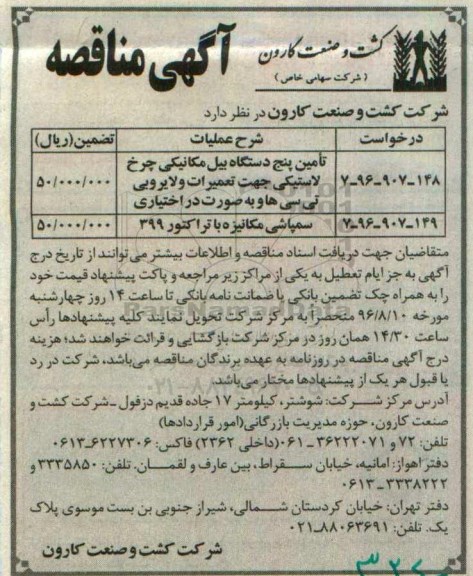 کشت و صنعت کارون
( شرکت سهامی خاص )
آگهی مناقصه
شرکت کشت و صنعت کارون در نظر دارد
درخواست شرح عملیات تضمین(ریال)
۷-۹۶-۹۰۷-۱۴۸ تأمین پنج دستگاه بیل مکانیکی چرخ ۵۰/۰۰۰/۰۰۰
لاستیکی جهت تعمیرات و لایروبی
تی بی ها و به صورت در اختیاری
۷-۹۶-۹۰۷-۱۴۹ سمپاشی مکانیزه با تراکتور ۳۹۹ ۵۰/۰۰۰/۰۰۰
متقاضیان جهت دریافت اسناد مناقصه و اطلاعات بیشتر می توانند از تاریخ درج
آگهی به جز ایام تعطیل به یکی از مراکز زیر مراجعه و پاکت پیشنهاد قیمت خود
را به همراه چک تضمین بانکی یا ضمانت نامه بانکی تا ساعت ۱۴ روز چهارشنبه
مورخه ۹۶/۸/۱۰ منحصراً به مرکز شرکت تحویل نمایند. کلیه پیشنهادها رأس
ساعت ۱۴/۳۰ همان روز در مرکز شرکت بازگشایی و قرائت خواهند شد؛ هزینه
درج آگهی مناقصه در روزنامه به عهده برندگان مناقصه می‌باشد، شرکت در رد
یا قبول هر یک از پیشنهادها مختار می‌باشد.
آدرس مرکز شرکت: شوشتر، کیلومتر ۱۷ جاده قدیم دزفول ـ شرکت کشت و
صنعت کارون، حوزه مدیریت بازرگانی(امور قراردادها)
تلفن: ۷۲ و ۳۶۲۲۲۰۷۱-۰۶۱(داخلی ۲۳۶۲) فاکس: ۶۲۲۷۳۰۶-۰۶۱۳
دفتر اهواز: امانیه، خیابان سقراط، بین عارف و لقمان. تلفن: ۳۳۳۵۸۵۰ و
۳۳۳۸۲۲۲-۰۶۱۳
دفتر تهران: خیابان کردستان شمالی، شیراز جنوبی بن بست موسوی پلاک
یک. تلفن: ۸۸۰۶۳۶۹۱-۰۲۱
شرکت کشت و صنعت کارون